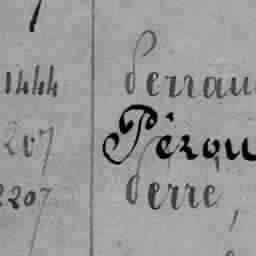 1444 Perrau
207 Pérou
2207 Perré,